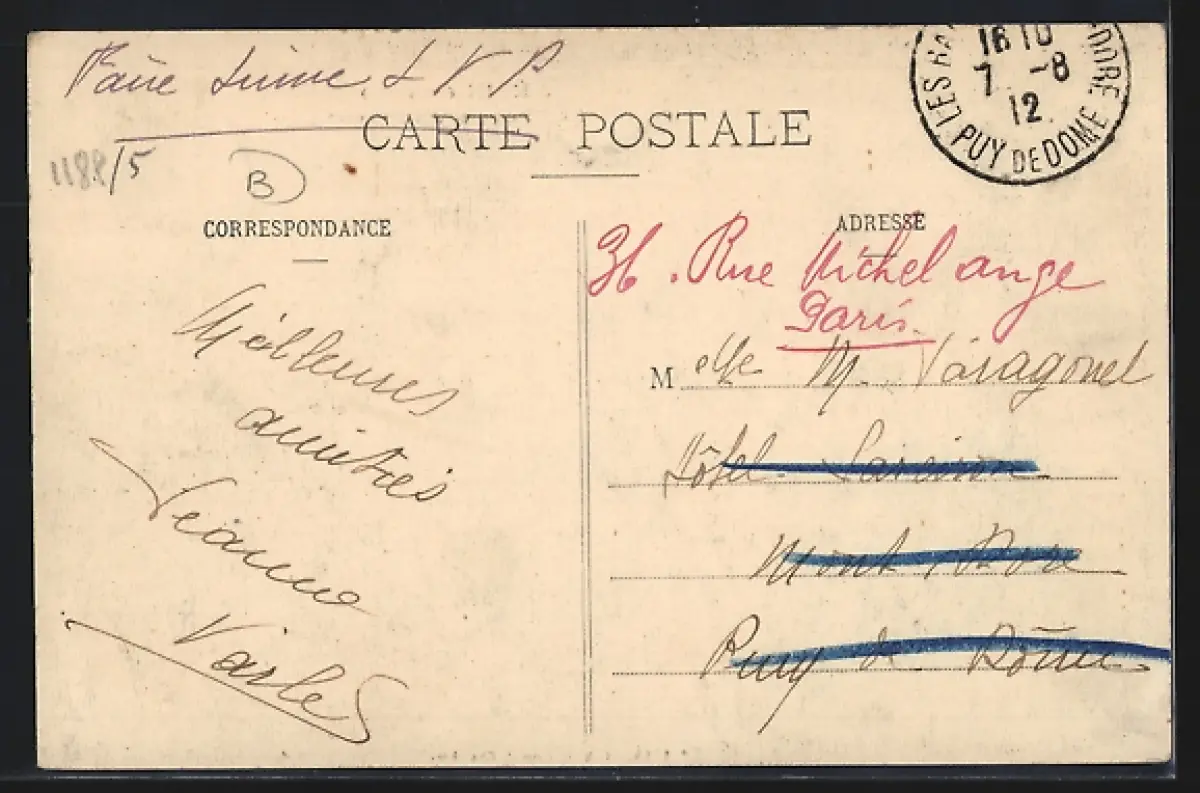 Faire suivre S V P
CARTE POSTALE
1188/5
B
LES BA
16 10
7 -8
12
PUY DE DOME
CORRESPONDANCE
ADRESSE
36. Rue Michel ange
Paris
Meilleures
amitiés
Jeanne
M elle M.
Hôtel
Mont Dore
Puy de Dôme